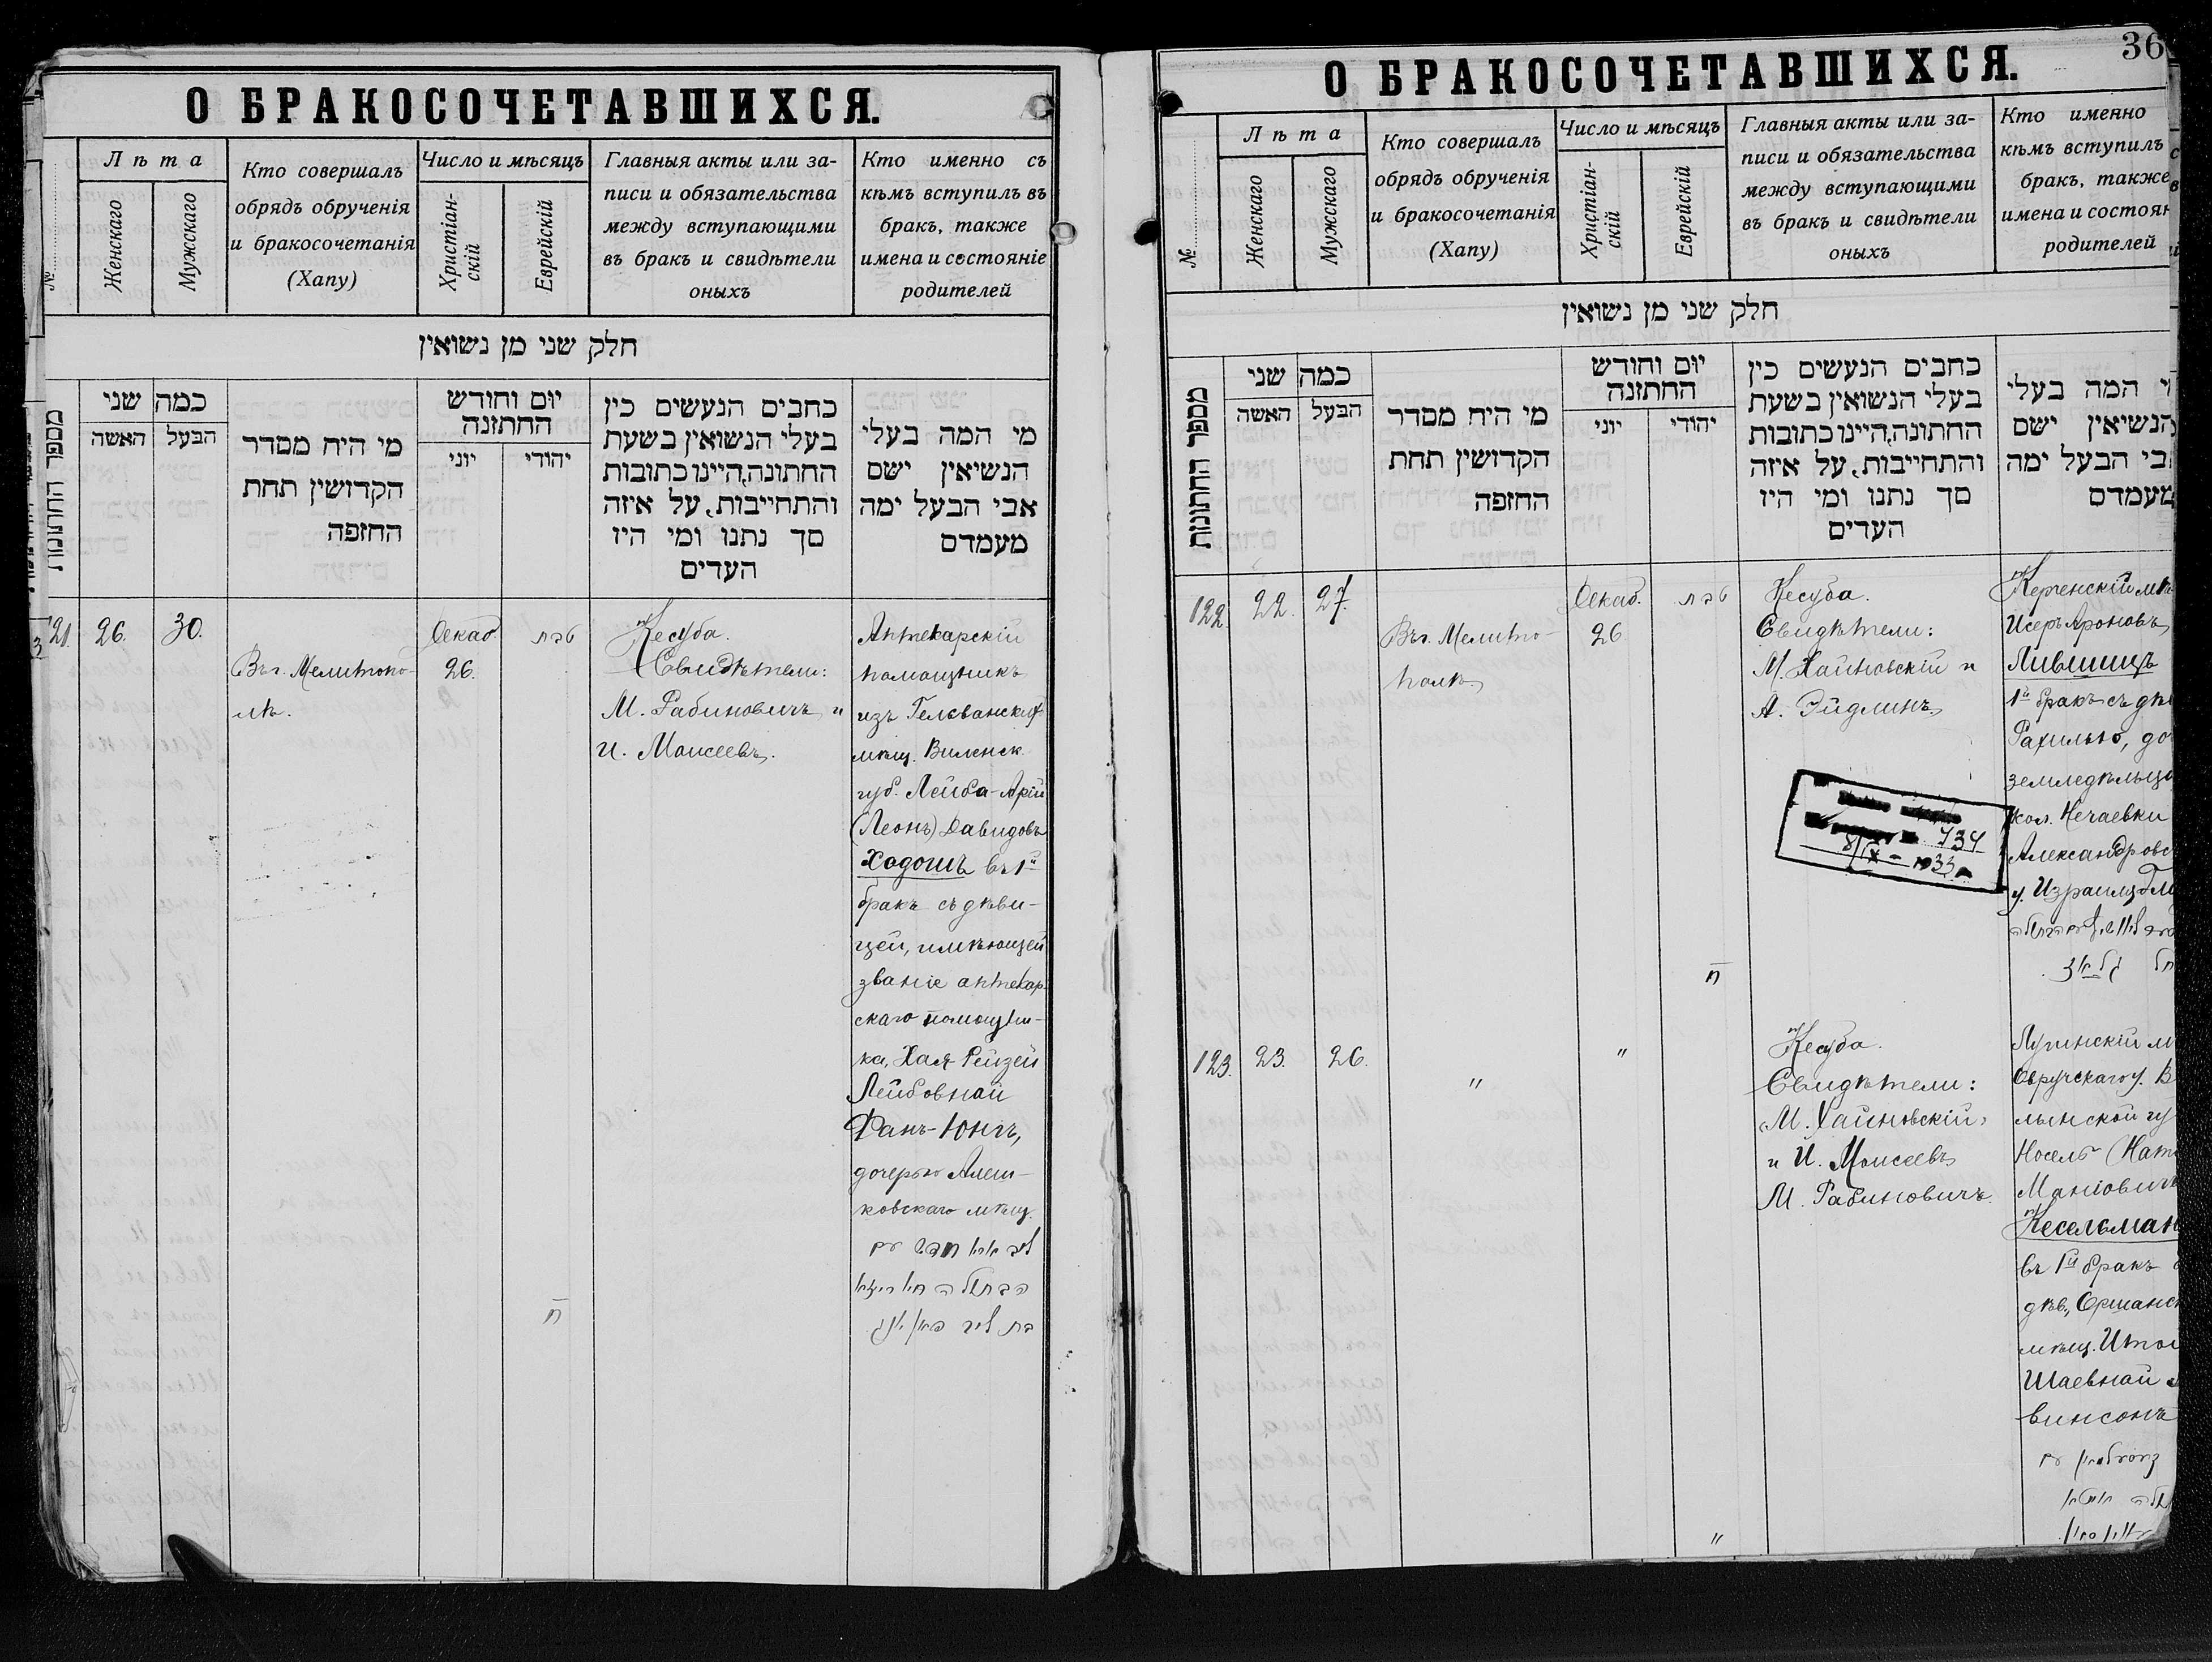 О БРАКОСОЧЕТАВШИХСЯ.
№
Лѣта
Женскаго
Мужскаго
Кто совершалъ
обрядъ обрученія
и бракосочетанія
(Хапу)
Число и мѣсяцъ
Христіан-
скій
Еврейскій
Главныя акты или за-
писи и обязательства
между вступающими
въ бракъ и свидѣтели
оныхъ
Кто именно съ
кѣмъ вступилъ въ
бракъ, также
имена и состояніе
родителей
חלק שני מן נשואין
מספר החתונות
כמה שני
האשה
הבעל
מי היח מסדר
הקדושין תחת
החזפה
יום וחודש
החתזנה
יוני
יהודי
כחבים הנעשים כין
בעלי הנשואין בשעת
החתונה,היינו כתובות
והתחייבות, על איזה
סך נתנו ומי היז
העדים
מי המה בעלי
הנשיאין ישם
אבי הבעל ימה
מעמדם
121
26.
30.
Въ г. Мелитопо-
лѣ.
Декаб.
26.
טבת
ח
Кесуба.
Свидѣтели:
М. Рабиновичъ и
И. Моисеевъ.
Аптекарскій
помощникъ
изъ Гельванских
мѣщ. Виленск.
губ. Лейба-Арій
(Леонъ) Давидовъ
Ходошъ въ 1й
бракъ съ дѣви-
цей, имѣющей
званіе аптекар-
скаго помощни-
ка, Хая-Рейзей
Лейбовной
Фанъ-Юнгъ,
дочерью Алеш-
ковскаго мѣщ.
О БРАКОСОЧЕТАВШИХСЯ.
36
№
Лѣта
Женскаго
Мужскаго
Кто совершалъ
обрядъ обрученія
и бракосочетанія
(Хапу)
Число и мѣсяцъ
Христіан-
скій
Еврейскій
Главныя акты или за-
писи и обязательства
между вступающими
въ бракъ и свидѣтели
оныхъ
Кто именно
кѣмъ вступилъ
бракъ, также
имена и состоян
родителей
חלק שני מן נשואין
מספר החתונות
כמה שני
האשה
הבעל
מי היח מסדר
הקדושין תחת
החזפה
יום וחודש
החתזנה
יוני
יהודי
כחבים הנעשים כין
בעלי הנשואין בשעת
החתונה,היינו כתובות
והתחייבות, על איזה
סך נתנו ומי היז
העדים
י המה בעלי
הנשיאין ישם
בי הבעל ימה
מעמדם
122
22.
27.
Въ г. Мелито-
полѣ.
Декаб.
26
טבת
ח
Кесуба.
Свидѣтели:
М. Хайновскій и
А. Эйдлинъ.
734
8/IX - 1933
Керченскій мѣщ
Исеръ Ароновъ
Лившицъ
1й бракъ съ дѣв
Рахилью, до
земледѣльца
кол. Нечаевки
Александровс
у. Израиль
123.
23.
26.
"
"
"
Кесуба.
Свидѣтели:
М. Хайновскій,
и И. Моисеевъ
М. Рабиновичъ.
Лугинскій м
Овручскаго у. В
лынской гу
Носель (Нат
Маніовичъ
Кесельман
въ 1й бракъ
дѣв., Оршанск
мѣщ. Итой
Шаевной
винсонъ